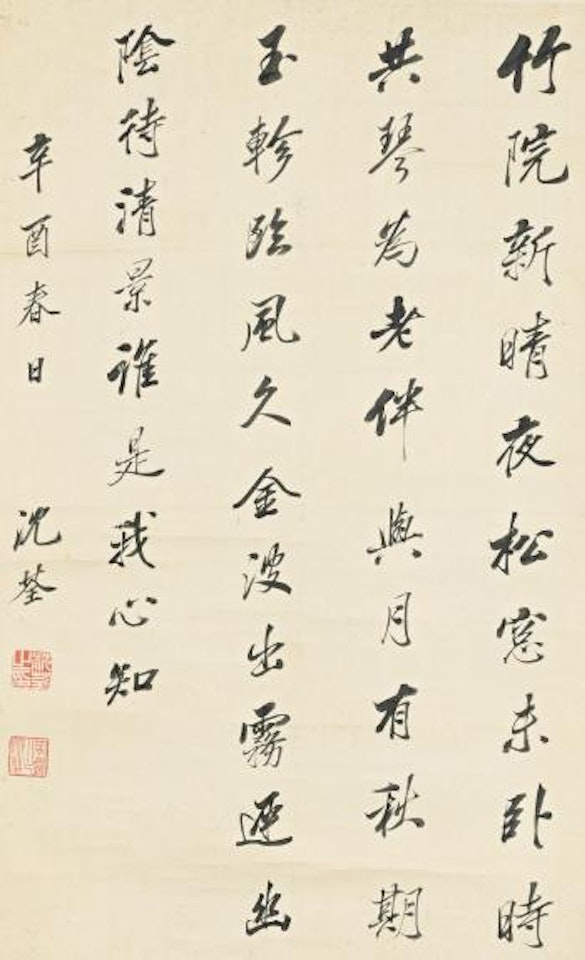 竹院新晴夜松窓未卧時
共琴為老伴與月有秋期
玉軫臨風久金波出霧遲幽
陰待清景誰是我心知
辛酉春日 沈荃